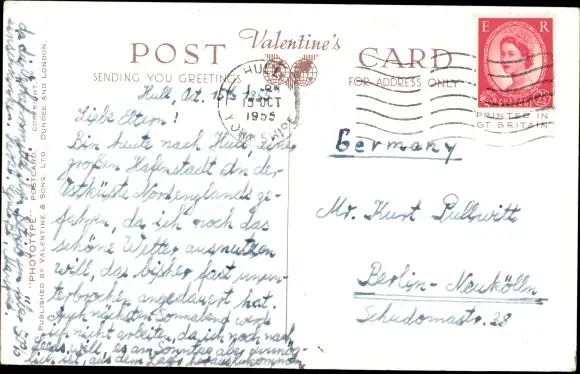 POST Valentine's CARD
SENDING YOU GREETINGS
FOR ADDRESS ONLY
HULL
15 OCT
1955
YORKSHIRE
E R
POSTAGE
PRINTED IN
GT BRITAIN
Hull, Oct. 15th 1955
Liebe Eltern!
Bin heute nach Hull, eine
großen Hafenstadt an der
Ostküste Nordenglands ge-
fahren, da ich noch das
schöne Wetter ausnutzen
will, das bisher fast unun-
terbrochen angedauert hat.
Auch nächsten Sonnabend werde
ich nicht arbeiten, da ich noch nach
Leeds will, es am Sonntag aber unmög-
lich ist, aus dem Lager herauszukommen,
Germany
Mr. Kurt Pullwitt
Berlin-Neukölln
Schudomastr. 28
"PHOTOTYPE" POSTCARD
COPYRIGHT
PUBLISHED BY VALENTINE & SONS, LTD. DUNDEE AND LONDON